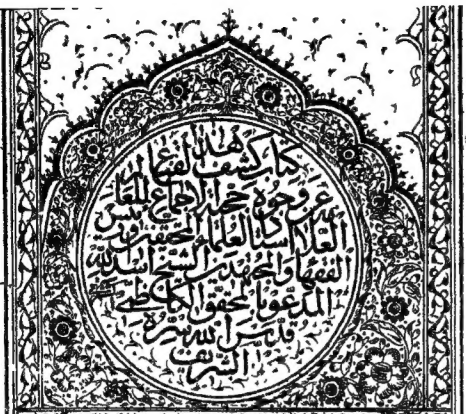 هذا
كتاب كشف القناع
عن وجوه حجية الاجماع
استاد العلماء المحققين ورئيس
الفقهاء والمجتهدين الشيخ اسد الله
المدعو بالمحقق الكاظمي
قدس الله سره
الشريف